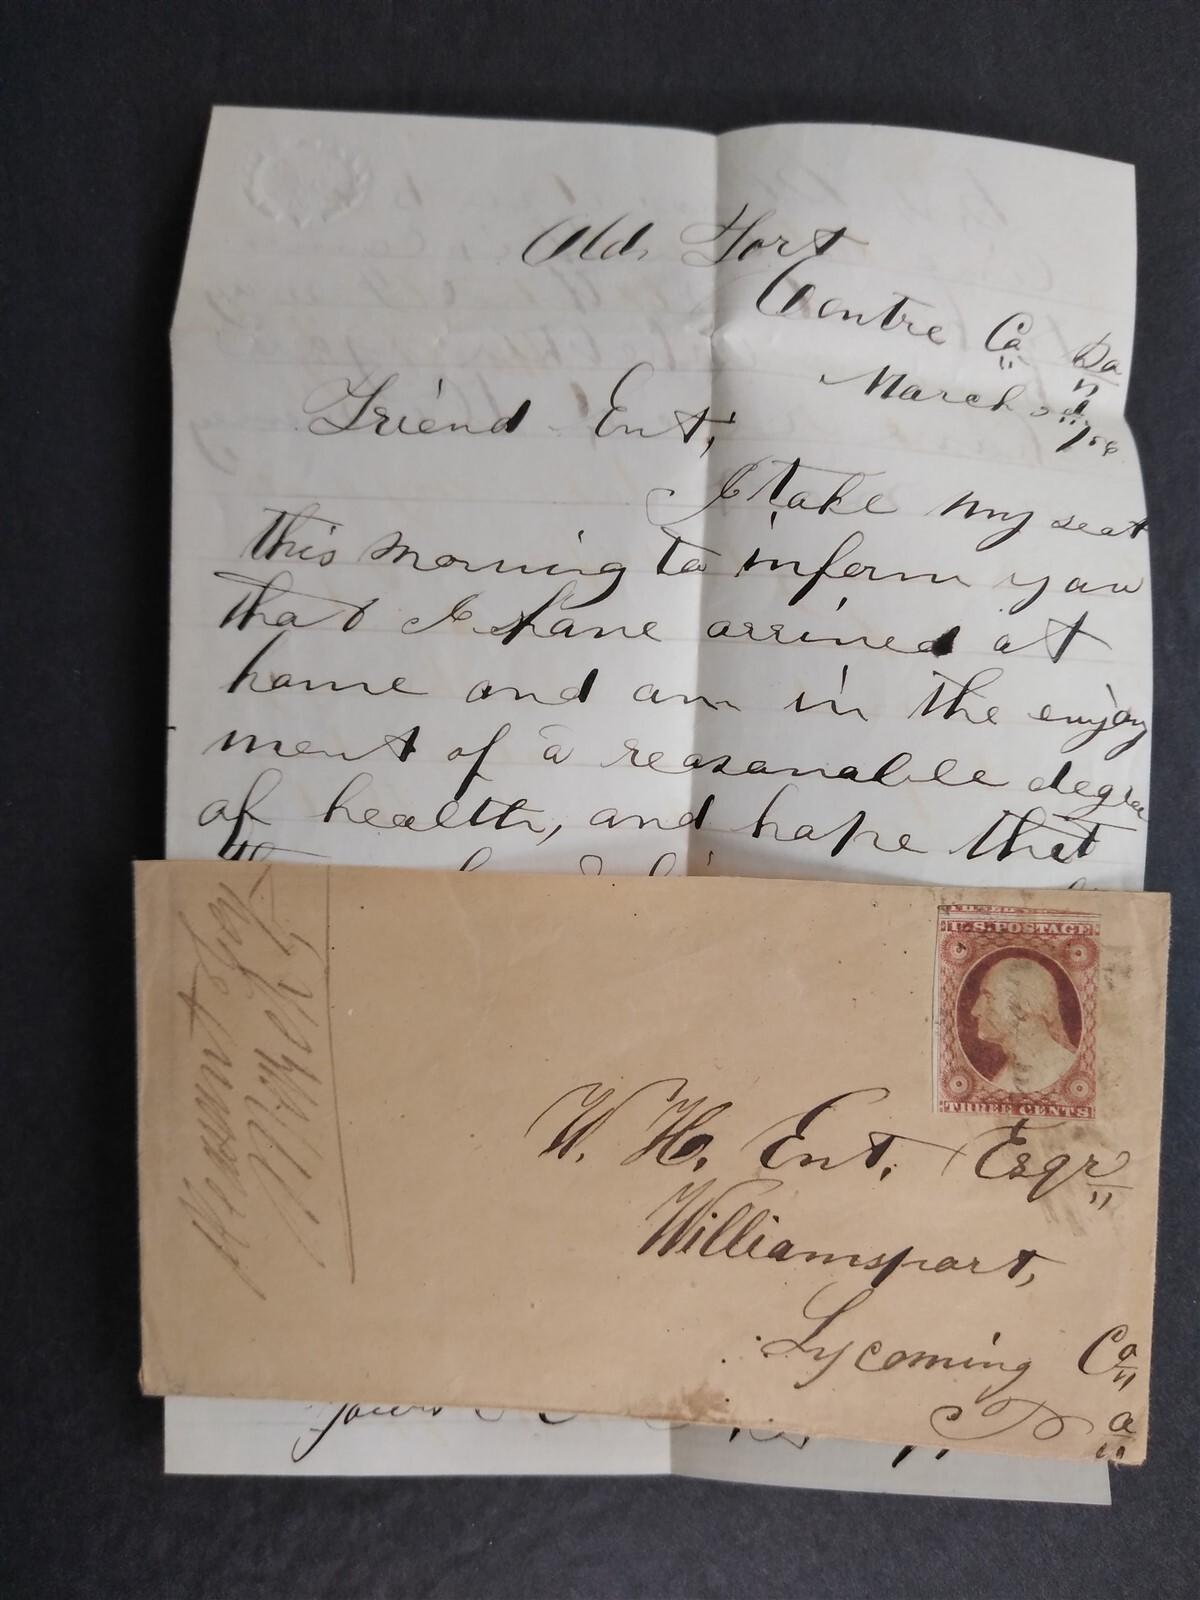 Old Fort
Centre Co Pa
March 2d /56
Friend Ent,
I take my seat
this morning to inform you
that I have arrived at
home and am in the enjoy
ment of a reasonable degree
of health, and hope that
Pleasant Gap
Mch 3
U.S. POSTAGE
THREE CENTS
W. H. Ent. Esqr
Williamsport,
Lycoming Co
Pa
Yours